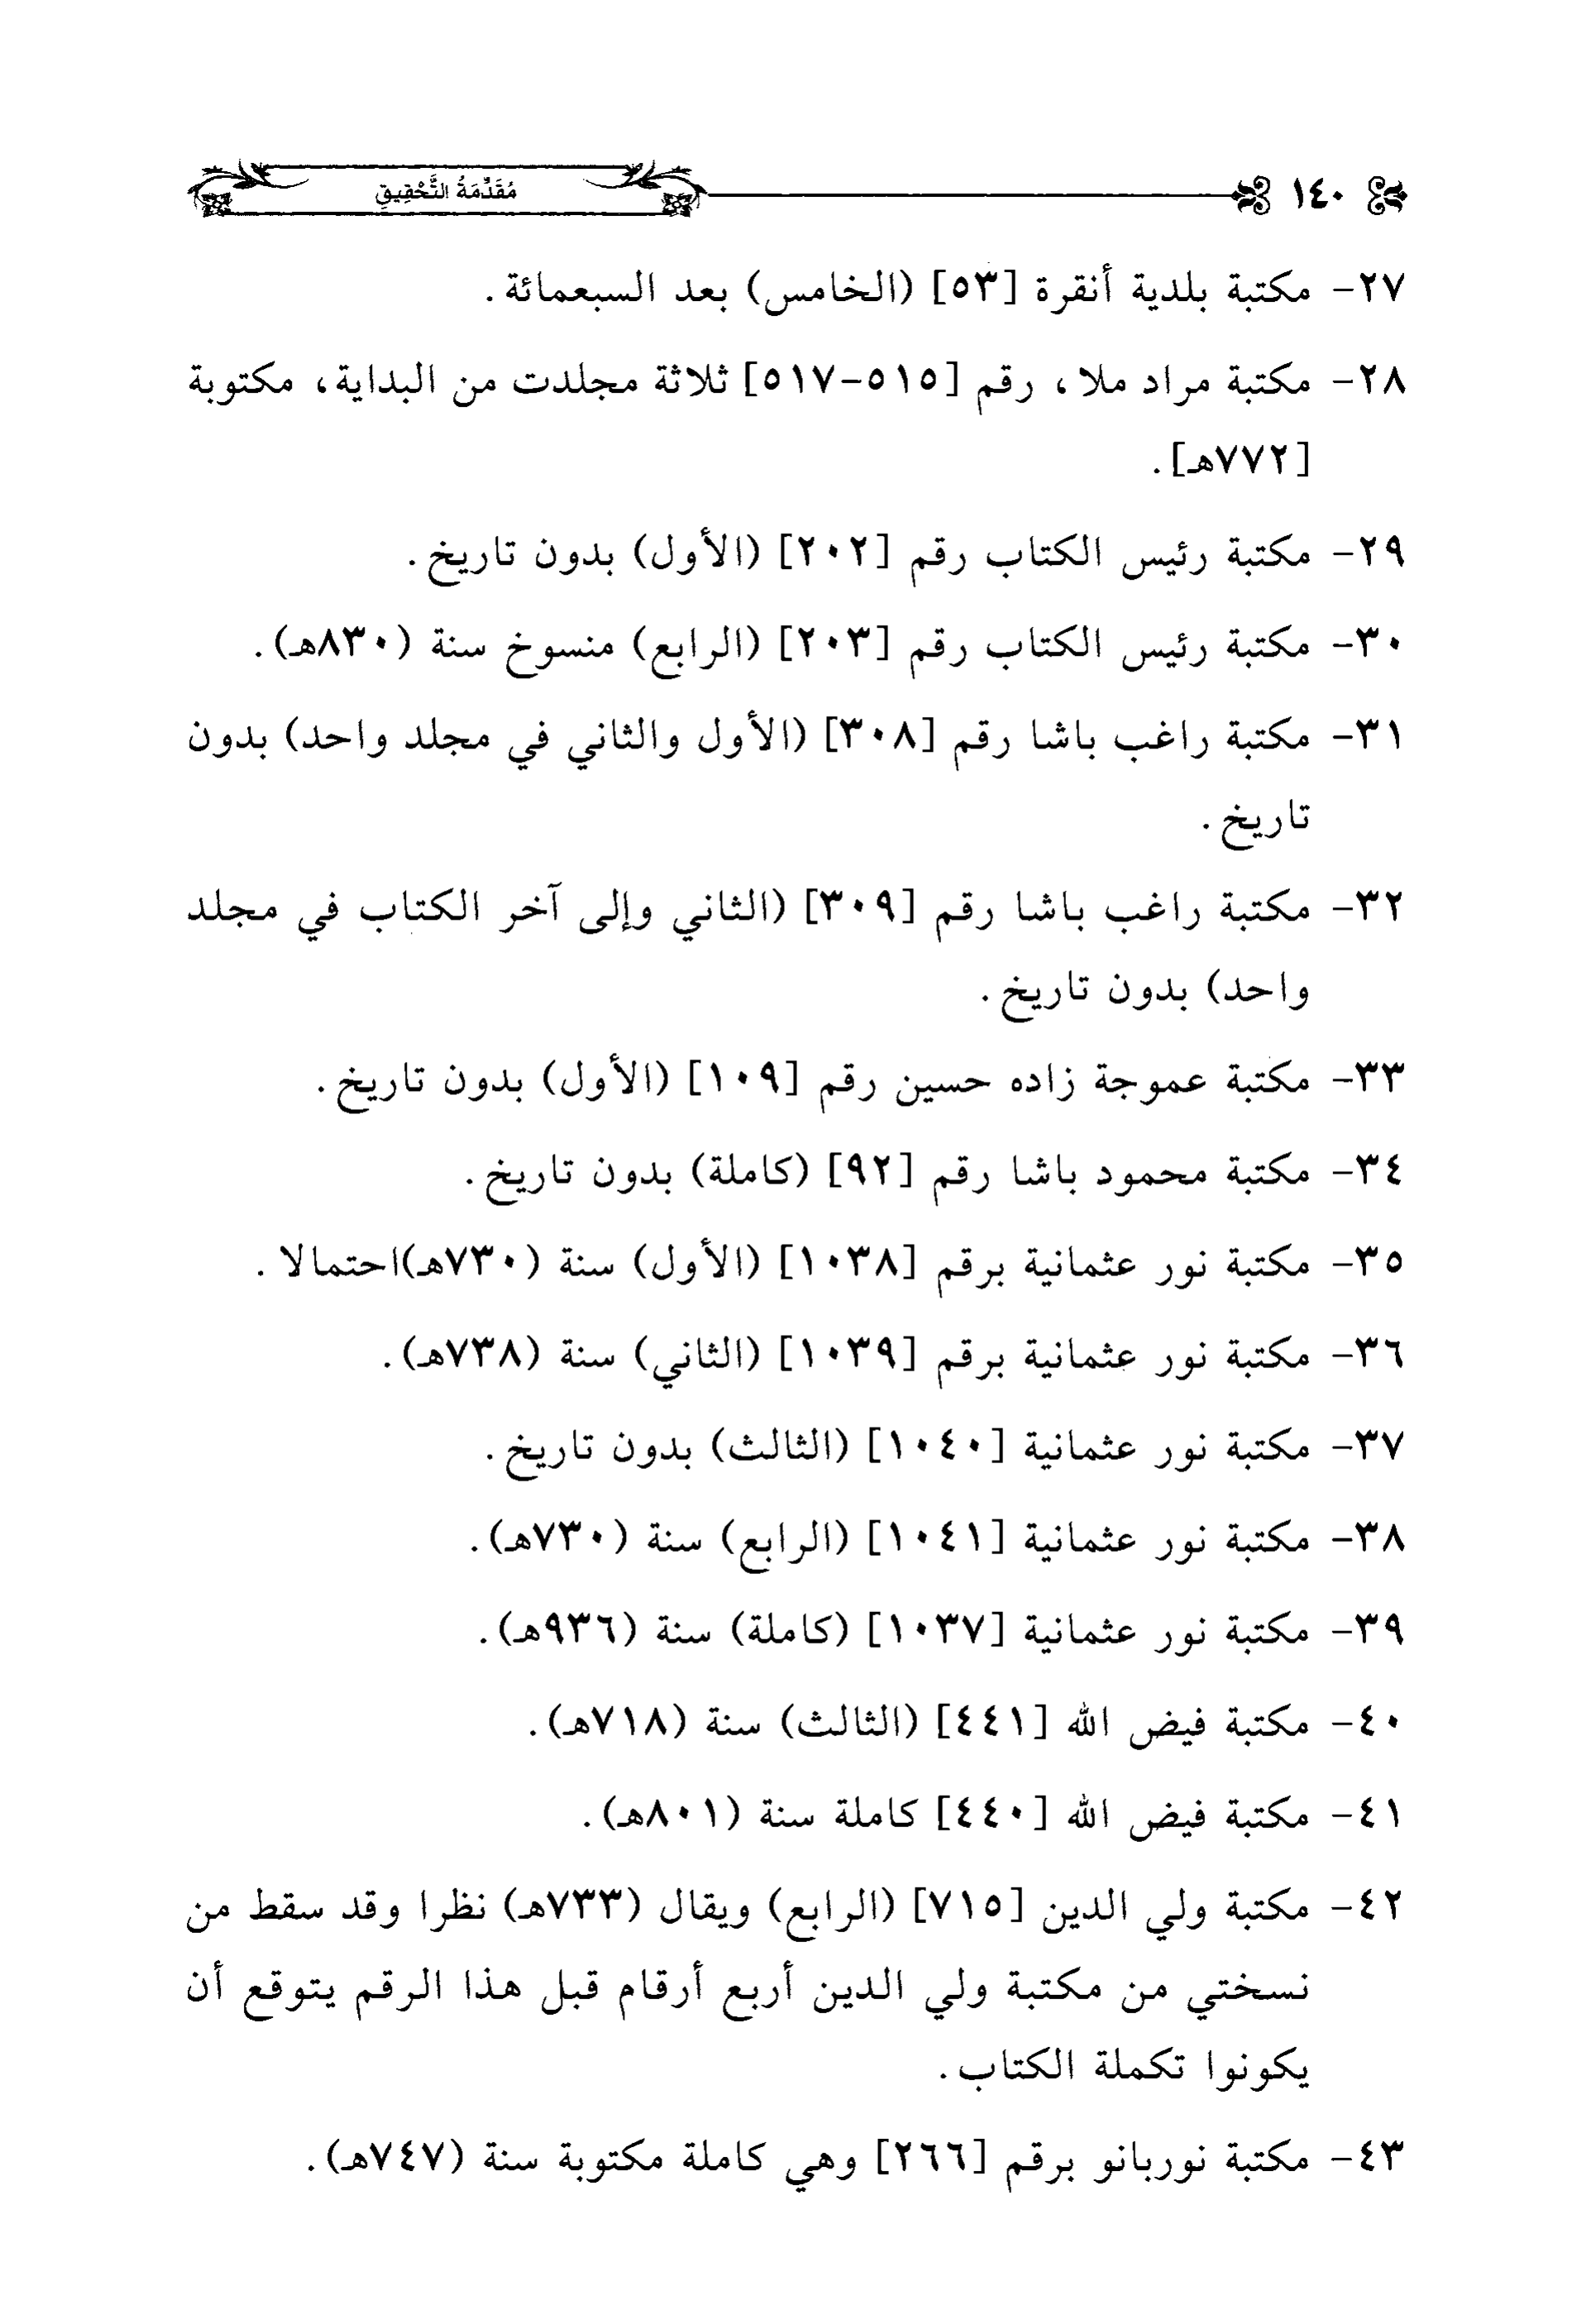 ١٤٠ مُقَدِّمَةُ التَّحْقِيقِ
٢٧- مكتبة بلدية أنقرة [٥٣] (الخامس) بعد السبعمائة.
٢٨- مكتبة مراد ملا، رقم [٥١٥-٥١٧] ثلاثة مجلدت من البداية، مكتوبة
[٧٧٢هـ].
٢٩- مكتبة رئيس الكتاب رقم [٢٠٢] (الأول) بدون تاريخ.
٣٠- مكتبة رئيس الكتاب رقم [٢٠٣] (الرابع) منسوخ سنة (٨٣٠هـ).
٣١- مكتبة راغب باشا رقم [٣٠٨] (الأول والثاني في مجلد واحد) بدون
تاريخ.
٣٢- مكتبة راغب باشا رقم [٣٠٩] (الثاني وإلى آخر الكتاب في مجلد
واحد) بدون تاريخ.
٣٣- مكتبة عموجة زاده حسين رقم [١٠٩] (الأول) بدون تاريخ.
٣٤- مكتبة محمود باشا رقم [٩٢] (كاملة) بدون تاريخ.
٣٥- مكتبة نور عثمانية برقم [١٠٣٨] (الأول) سنة (٧٣٠هـ)احتمالا.
٣٦- مكتبة نور عثمانية برقم [١٠٣٩] (الثاني) سنة (٧٣٨هـ).
٣٧- مكتبة نور عثمانية [١٠٤٠] (الثالث) بدون تاريخ.
٣٨- مكتبة نور عثمانية [١٠٤١] (الرابع) سنة (٧٣٠هـ).
٣٩- مكتبة نور عثمانية [١٠٣٧] (كاملة) سنة (٩٣٦هـ).
٤٠- مكتبة فيض الله [٤٤١] (الثالث) سنة (٧١٨هـ).
٤١- مكتبة فيض الله [٤٤٠] كاملة سنة (٨٠١هـ).
٤٢- مكتبة ولي الدين [٧١٥] (الرابع) ويقال (٧٣٣هـ) نظرا وقد سقط من
نسختي من مكتبة ولي الدين أربع أرقام قبل هذا الرقم يتوقع أن
يكونوا تكملة الكتاب.
٤٣- مكتبة نوربانو برقم [٢٦٦] وهي كاملة مكتوبة سنة (٧٤٧هـ).